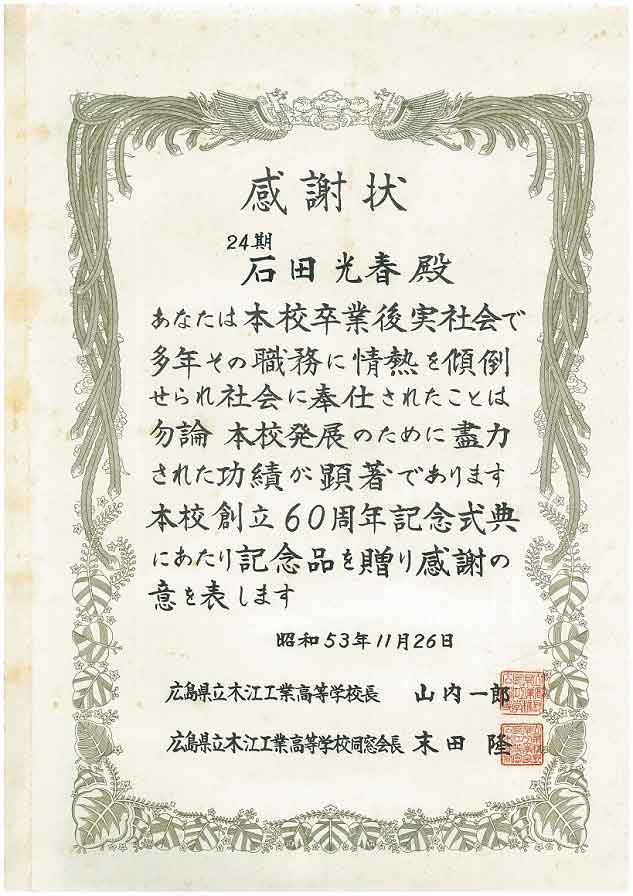 感謝状
24期
石田光春殿
あなたは本校卒業後実社会で
多年その職務に情熱を傾倒
せられ社会に奉仕されたことは
勿論 本校発展のために盡力
された功績が顕著であります
本校創立60周年記念式典
にあたり記念品を贈り感謝の
意を表します
昭和53年11月26日
広島県立木江工業高等学校長 山内一郎
広島県立木江工業高等学校同窓会長 末田 隆